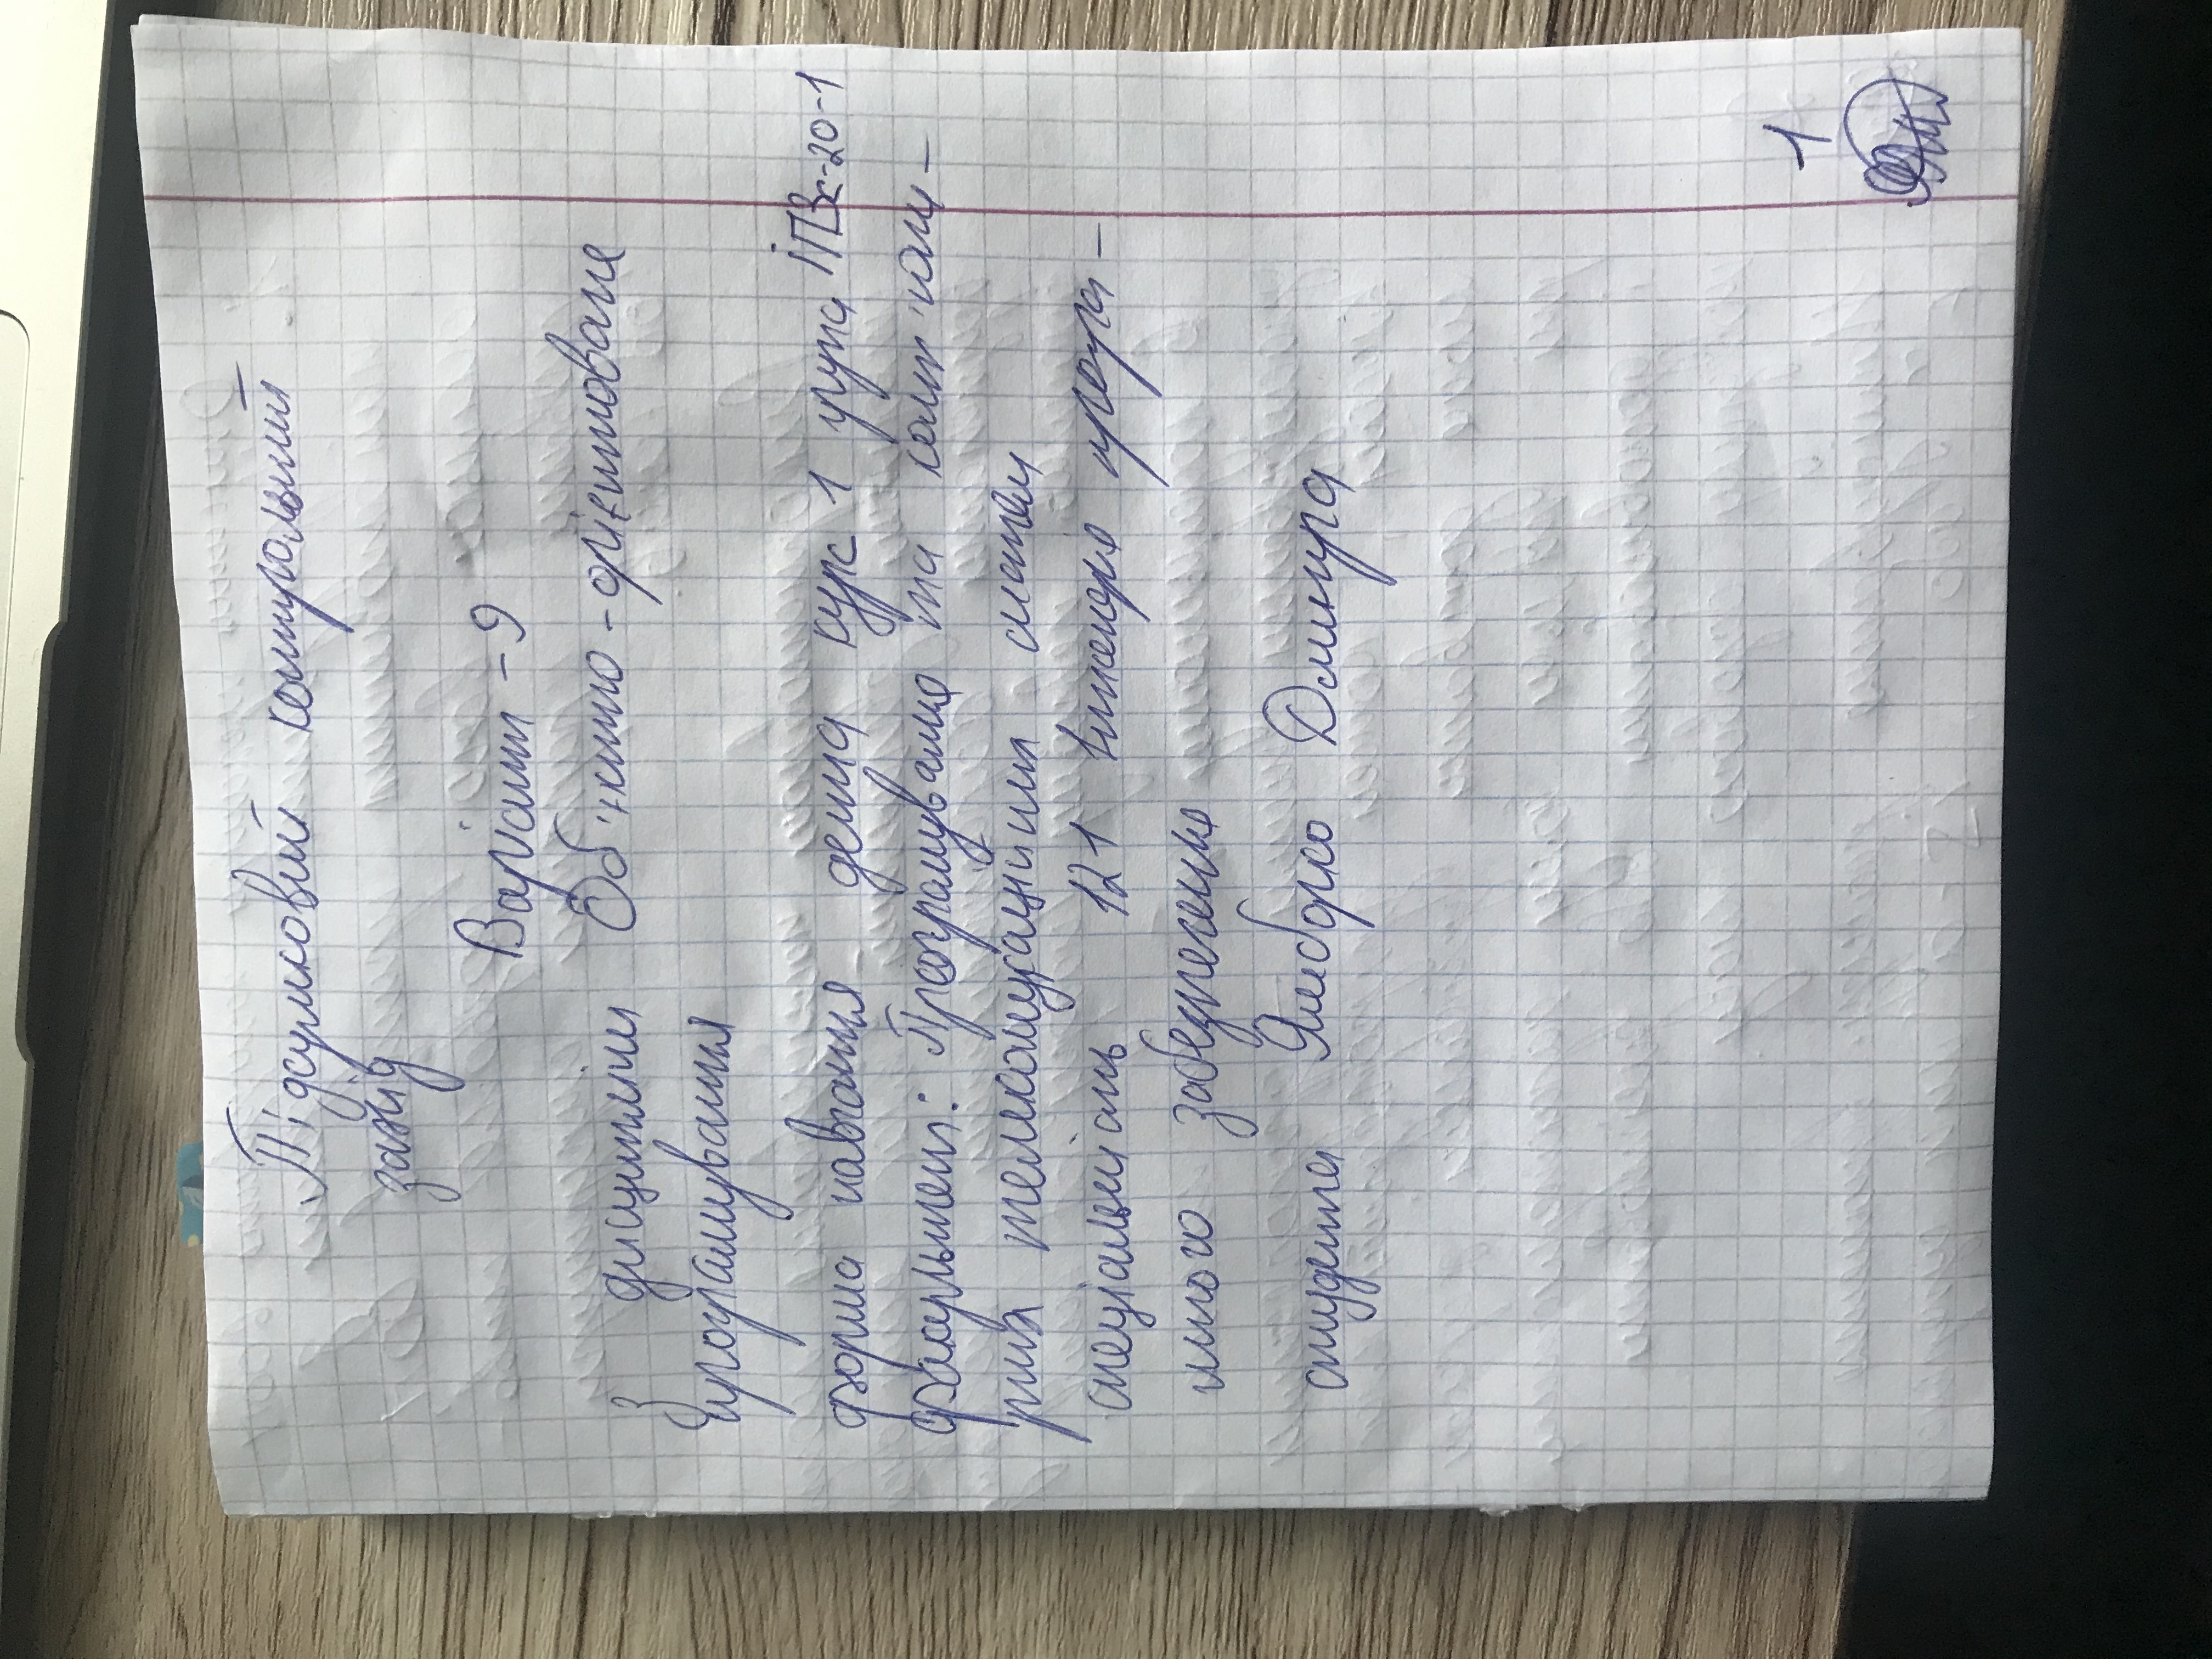 Підсумковий контрольний
захід
Варіант - 9
з дисципліни Об'єктно-орієнтоване
програмування
форма навчання денна курс 1 група ІПЗс-20-1
факультет: Програмування та комп'юте-
рних телекомукаційних систем
спеціальність 121 Інженерія програ-
много забезпечення
студента Дмитра
1